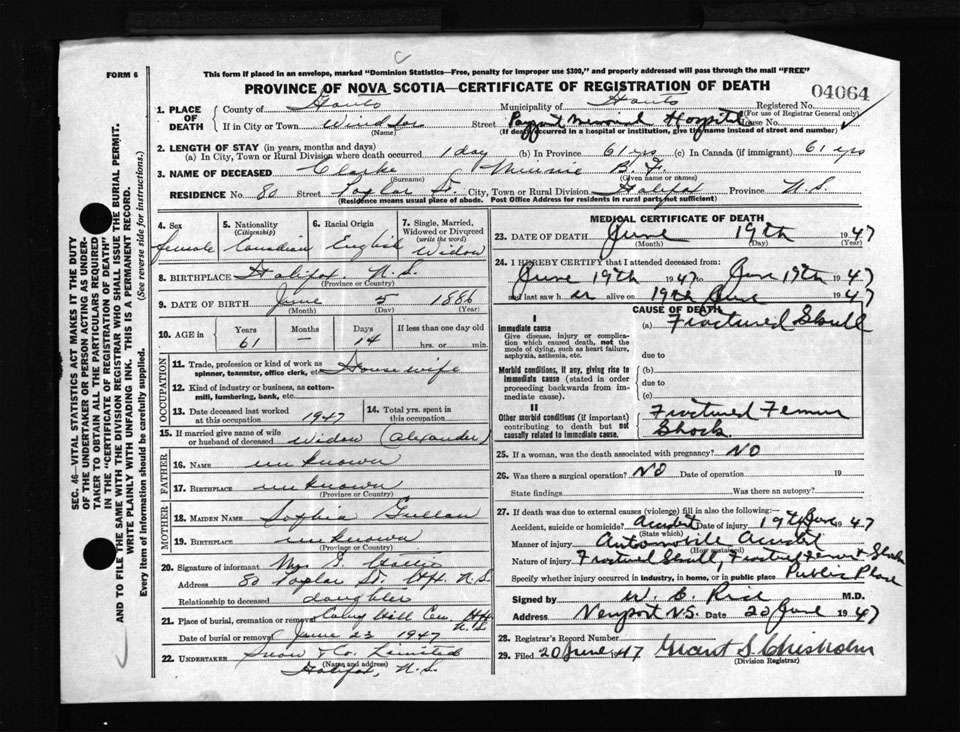 FORM 6
This form if placed in an envelope, marked "Dominion Statistics—Free, penalty for improper use $300," and properly addressed will pass through the mail "FREE"
PROVINCE OF NOVA SCOTIA—CERTIFICATE OF REGISTRATION OF DEATH
04064
1. PLACE OF DEATH
County of Hants Municipality of Hants Registered No.
(For use of Registrar General only)
If in City or Town Windsor Street Payzant Memorial Hospital House No.
(Name) (If death occurred in a hospital or institution, give the name instead of street and number)
2. LENGTH OF STAY (in years, months and days)
(a) In City, Town or Rural Division where death occurred 1 day (b) In Province 61 yrs (c) In Canada (if immigrant) 61 yrs
3. NAME OF DECEASED Clarke Minnie B.
(Surname) (Given name or names)
RESIDENCE No. 80 Street Taylor St. City, Town or Rural Division Halifax Province N.S.
(Residence means usual place of abode. Post Office Address for residents in rural parts not sufficient)
4. Sex
female
5. Nationality (Citizenship)
Canadian
6. Racial Origin
English
7. Single, Married, Widowed or Divorced (write the word)
Widow
8. BIRTHPLACE Halifax. N.S.
(Province or Country)
9. DATE OF BIRTH June 5 1886
(Month) (Day) (Year)
10. AGE in Years Months Days If less than one day old
61 — 14 hrs. or min.
OCCUPATION
11. Trade, profession or kind of work as spinner, teamster, office clerk, etc. Housewife
12. Kind of industry or business, as cotton-mill, lumbering, bank, etc.
13. Date deceased last worked at this occupation 1947
14. Total yrs. spent in this occupation
15. If married give name of wife or husband of deceased widow (Alexander)
FATHER
16. NAME unknown
17. BIRTHPLACE unknown
(Province or Country)
MOTHER
18. MAIDEN NAME Sophia
19. BIRTHPLACE unknown
(Province or Country)
20. Signature of informant Mrs
Address 80 Taylor St. Hfx. N.S.
Relationship to deceased daughter
21. Place of burial, cremation or removal Hill Cem. Hfx N.S.
Date of burial or removal June 23 1947
22. UNDERTAKER Snow & Co. Limited
(Name and address)
Halifax, N.S.
MEDICAL CERTIFICATE OF DEATH
23. DATE OF DEATH June 19th 1947
(Month) (Day) (Year)
24. I HEREBY CERTIFY that I attended deceased from
June 19th 1947 to June 19th 1947
and last saw her alive on 19th June 1947
CAUSE OF DEATH
I
Immediate cause
Give disease, injury or complication which caused death, not the mode of dying, such as heart failure, asphyxia, asthenia, etc.
(a) Fractured Skull
due to
Morbid conditions, if any, giving rise to immediate cause (stated in order proceeding backwards from immediate cause).
(b)
due to
(c)
II
Other morbid conditions (if important) contributing to death but not causally related to immediate cause.
Fractured Femur
Shock.
25. If a woman, was the death associated with pregnancy? NO
26. Was there a surgical operation? NO Date of operation 19
State findings Was there an autopsy?
27. If death was due to external causes (violence) fill in also the following:—
Accident, suicide or homicide? Accident Date of injury 19th June 1947
(State which)
Manner of injury Automobile Accident
(How sustained)
Nature of injury Fractured Skull, Fractured Femur & Shock
Specify whether injury occurred in industry, in home, or in public place Public Place
Signed by W. C. Rice M.D.
Address Newport N.S. Date 20 June 1947
28. Registrar's Record Number
29. Filed 20 June 1947 Grant S. Chisholm
(Division Registrar)
SEC. 46—VITAL STATISTICS ACT MAKES IT THE DUTY
OF THE UNDERTAKER OR PERSON ACTING AS UNDER-
TAKER TO OBTAIN ALL THE PARTICULARS REQUIRED
IN THE "CERTIFICATE OF REGISTRATION OF DEATH"
AND TO FILE THE SAME WITH THE DIVISION REGISTRAR WHO SHALL ISSUE THE BURIAL PERMIT.
WRITE PLAINLY WITH UNFADING INK. THIS IS A PERMANENT RECORD.
Every item of information should be carefully supplied. (See reverse side for instructions.)